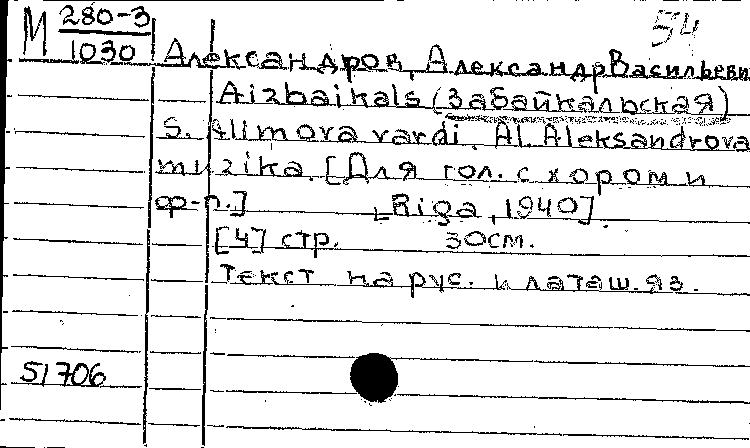 М 280-3
1030
54
Александров, Александр Васильеви
Aizbaikals (Забайкальская)
S. Alimova vardi. Al. Aleksandrova
muzika. [Для гол. с хором и
ф-п.] [Riga, 1940].
[4] стр. 30см.
Текст на рус. и латыш. яз.
51706